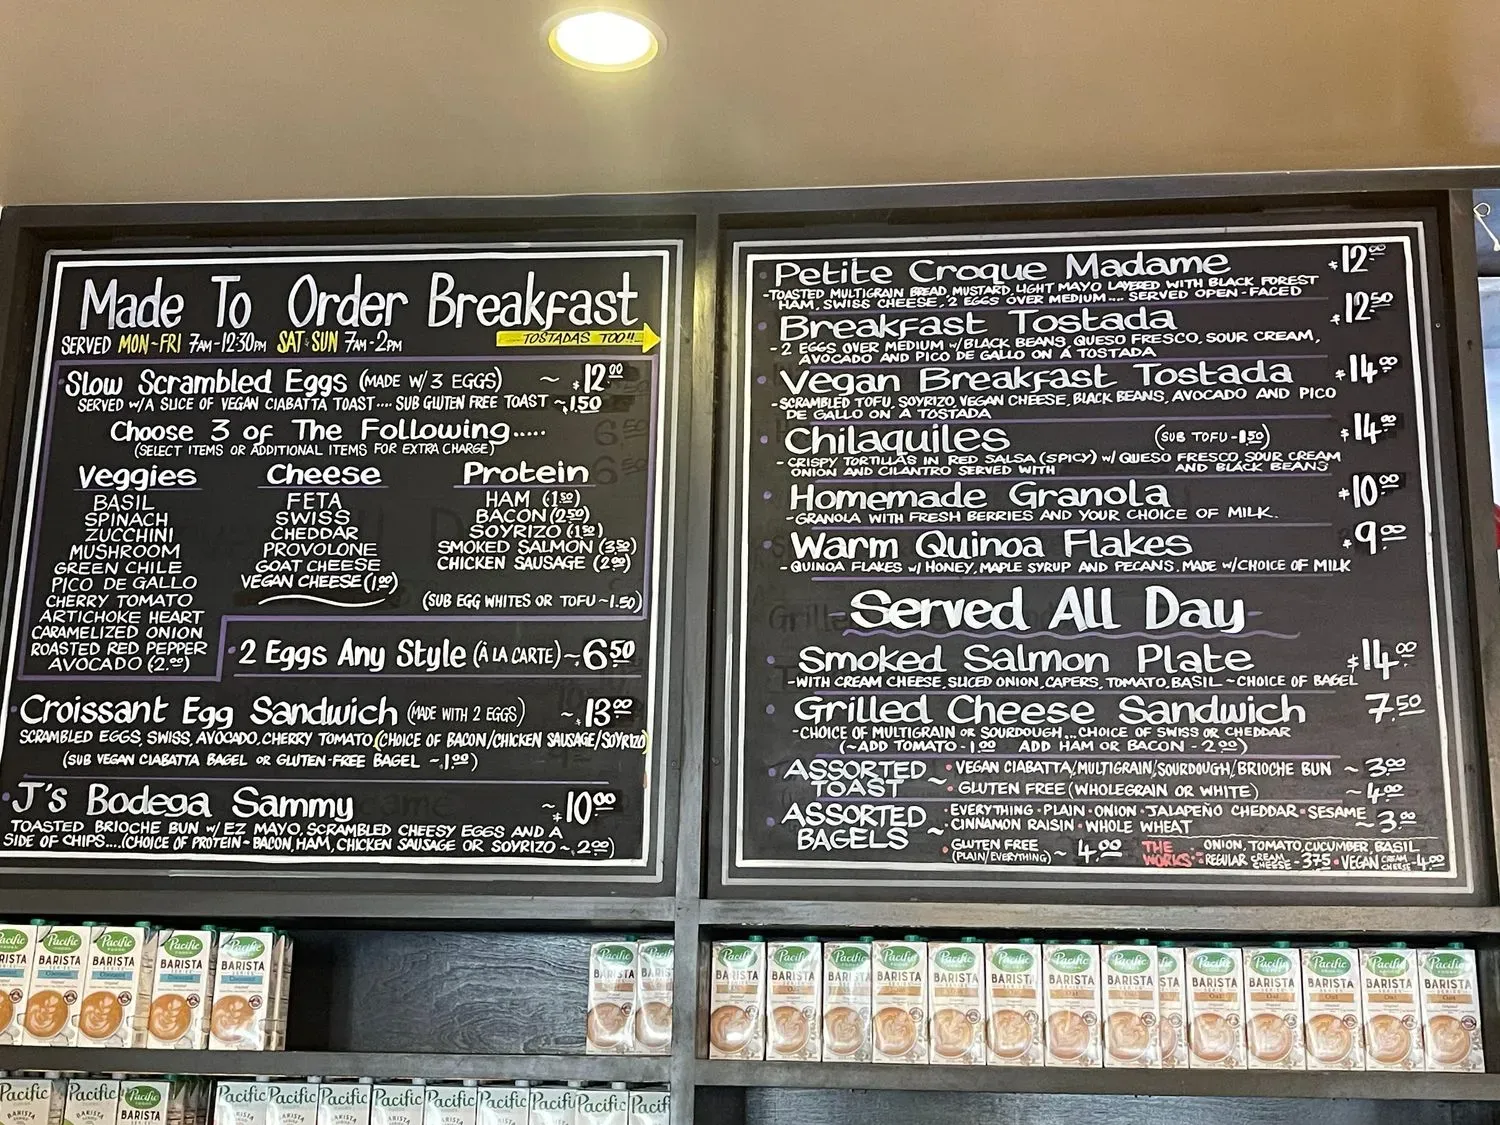 Made To Order Breakfast
SERVED MON-FRI 7AM-12:30PM SAT-SUN 7AM-2PM
TOSTADAS TOO!!
Slow Scrambled Eggs (MADE W/ 3 EGGS) ~ $12.00
SERVED W/A SLICE OF VEGAN CIABATTA TOAST.... SUB GLUTEN FREE TOAST ~ $1.50
Choose 3 of The Following.....
(SELECT ITEMS OR ADDITIONAL ITEMS FOR EXTRA CHARGE)
Veggies
BASIL
SPINACH
ZUCCHINI
MUSHROOM
GREEN CHILE
PICO DE GALLO
CHERRY TOMATO
ARTICHOKE HEART
CARAMELIZED ONION
ROASTED RED PEPPER
AVOCADO (2.00)
Cheese
FETA
SWISS
CHEDDAR
PROVOLONE
GOAT CHEESE
VEGAN CHEESE (1.00)
Protein
HAM (1.50)
BACON (2.50)
SOYRIZO (1.50)
SMOKED SALMON (3.50)
CHICKEN SAUSAGE (2.00)
(SUB EGG WHITES OR TOFU ~ 1.50)
2 Eggs Any Style (À LA CARTE) ~ 6.50
Croissant Egg Sandwich (MADE WITH 2 EGGS) ~ $13.00
SCRAMBLED EGGS, SWISS, AVOCADO, CHERRY TOMATO (CHOICE OF BACON/CHICKEN SAUSAGE/SOYRIZO)
(SUB VEGAN CIABATTA BAGEL OR GLUTEN-FREE BAGEL ~ 1.00)
J's Bodega Sammy ~ $10.00
TOASTED BRIOCHE BUN W/ EZ MAYO, SCRAMBLED CHEESY EGGS AND A
SIDE OF CHIPS....(CHOICE OF PROTEIN - BACON, HAM, CHICKEN SAUSAGE OR SOYRIZO ~ 2.00)
Petite Croque Madame $12.00
-TOASTED MULTIGRAIN BREAD, MUSTARD, LIGHT MAYO LAYERED WITH BLACK FOREST
HAM, SWISS CHEESE, 2 EGGS OVER MEDIUM.... SERVED OPEN-FACED
Breakfast Tostada $12.50
- 2 EGGS OVER MEDIUM W/BLACK BEANS, QUESO FRESCO, SOUR CREAM,
AVOCADO AND PICO DE GALLO ON A TOSTADA
Vegan Breakfast Tostada $14.00
-SCRAMBLED TOFU, SOYRIZO, VEGAN CHEESE, BLACK BEANS, AVOCADO AND PICO
DE GALLO ON A TOSTADA
Chilaquiles (SUB TOFU - 1.50) $14.00
- CRISPY TORTILLAS IN RED SALSA (SPICY) W/ QUESO FRESCO, SOUR CREAM
ONION AND CILANTRO SERVED WITH AND BLACK BEANS
Homemade Granola $10.00
-GRANOLA WITH FRESH BERRIES AND YOUR CHOICE OF MILK.
Warm Quinoa Flakes $9.00
-QUINOA FLAKES W/ HONEY, MAPLE SYRUP AND PECANS, MADE W/CHOICE OF MILK
Served All Day
Smoked Salmon Plate $14.00
-WITH CREAM CHEESE, SLICED ONION, CAPERS, TOMATO, BASIL ~ CHOICE OF BAGEL
Grilled Cheese Sandwich 7.50
-CHOICE OF MULTIGRAIN OR SOURDOUGH...CHOICE OF SWISS OR CHEDDAR
(~ADD TOMATO - 1.00 ADD HAM OR BACON - 2.00)
ASSORTED TOAST ~ VEGAN CIABATTA/MULTIGRAIN/SOURDOUGH/BRIOCHE BUN ~ 3.00
GLUTEN FREE (WHOLEGRAIN OR WHITE) ~ 4.00
ASSORTED BAGELS ~ EVERYTHING · PLAIN · ONION · JALAPEÑO CHEDDAR · SESAME
CINNAMON RAISIN · WHOLE WHEAT ~ 3.00
GLUTEN FREE (PLAIN/EVERYTHING) ~ 4.00
THE WORKS: ONION, TOMATO, CUCUMBER, BASIL
REGULAR CREAM CHEESE - 3.75 · VEGAN CREAM CHEESE - 4.00
Pacific
BARISTA
SERIES
Oat